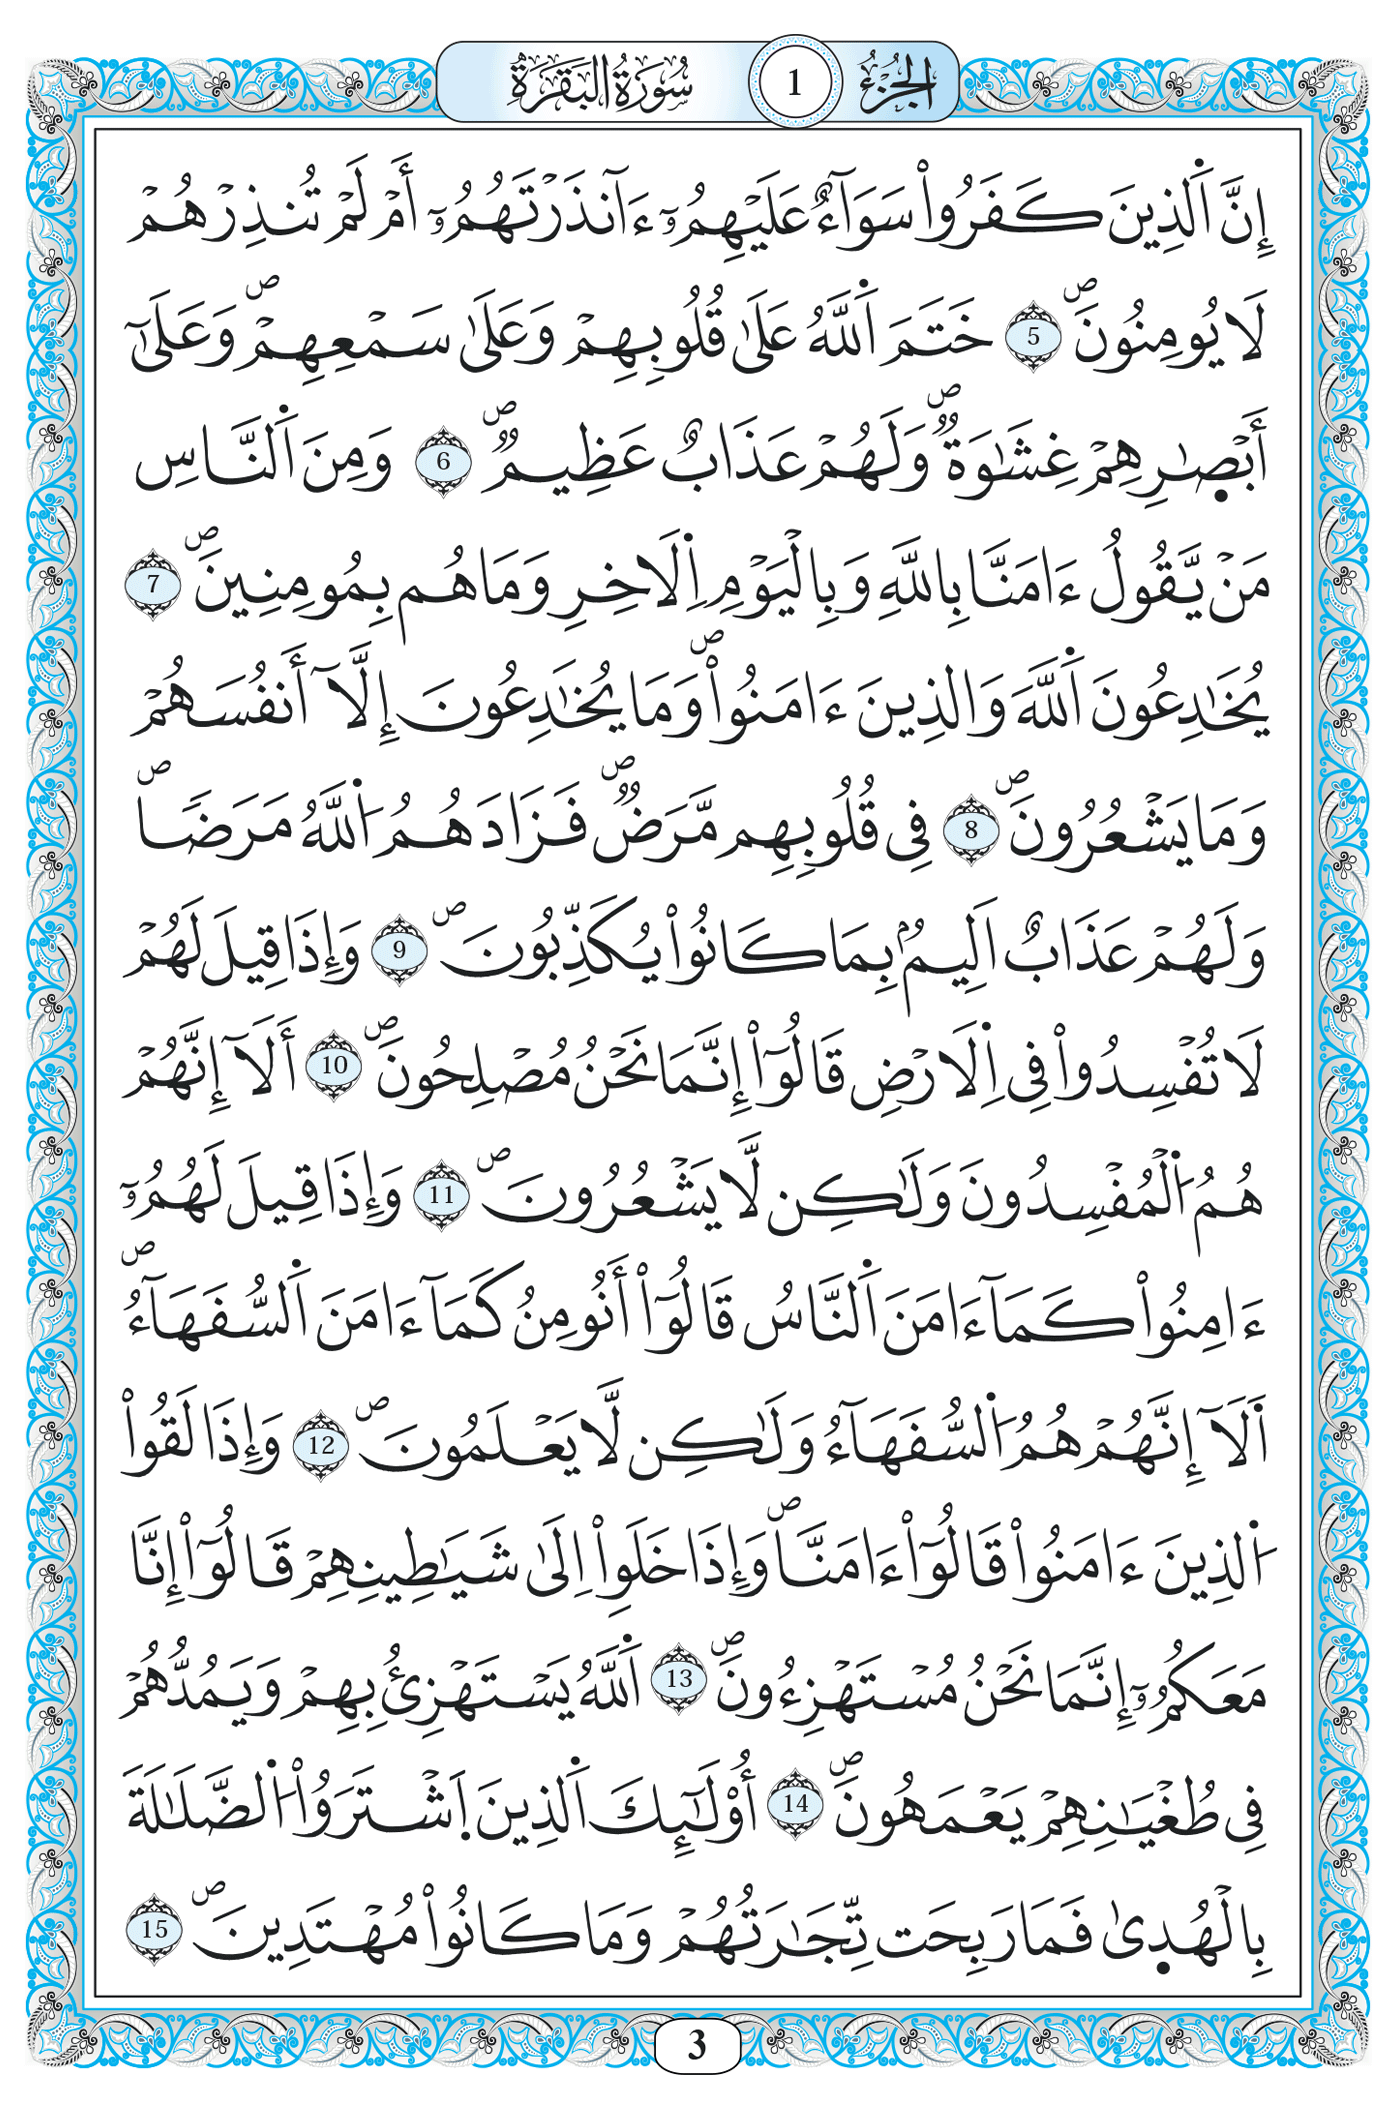 الجُزْءُ 1 سُورَةُ البَقَرَةِ
إِنَّ اَ۬لذِينَ كَفَرُواْ سَوَآءٌ عَلَيْهِمُۥٓ ءَآنذَرْتَهُمُۥٓ أَمْ لَمْ تُنذِرْهُمْ
لَا يُومِنُونَۖ 5 خَتَمَ اَ۬للَّهُ عَلَىٰ قُلُوبِهِمْ وَعَلَىٰ سَمْعِهِمْۖ وَعَلَىٰٓ
أَبْصٰ۪رِهِمْ غِشَٰوَةٞۖ وَلَهُمْ عَذَابٌ عَظِيمٞۖ 6 وَمِنَ اَ۬لنَّاسِ
مَنْ يَّقُولُ ءَامَنَّا بِاللَّهِ وَبِالْيَوْمِ اِ۬لَاخِرِ وَمَا هُم بِمُومِنِينَۖ 7
يُخَٰدِعُونَ اَ۬للَّهَ وَالذِينَ ءَامَنُواْۖ وَمَا يُخَٰدِعُونَ إِلَّآ أَنفُسَهُمْ
وَمَا يَشْعُرُونَۖ 8 فِي قُلُوبِهِم مَّرَضٞۖ فَزَادَهُمُ اُ۬للَّهُ مَرَضاٗۖ
وَلَهُمْ عَذَابٌ اَلِيمُۢ بِمَا كَانُواْ يُكَذِّبُونَۖ 9 وَإِذَا قِيلَ لَهُمْ
لَا تُفْسِدُواْ فِي اِ۬لَارْضِ قَالُوٓاْ إِنَّمَا نَحْنُ مُصْلِحُونَۖ 10 أَلَآ إِنَّهُمْ
هُمُ اُ۬لْمُفْسِدُونَ وَلَٰكِن لَّا يَشْعُرُونَۖ 11 وَإِذَا قِيلَ لَهُمُۥٓ
ءَامِنُواْ كَمَآ ءَامَنَ اَ۬لنَّاسُ قَالُوٓاْ أَنُومِنُ كَمَآ ءَامَنَ اَ۬لسُّفَهَآءُۖ
اَلَآ إِنَّهُمْ هُمُ اُ۬لسُّفَهَآءُ وَلَٰكِن لَّا يَعْلَمُونَۖ 12 وَإِذَا لَقُواْ
اُ۬لذِينَ ءَامَنُواْ قَالُوٓاْ ءَامَنَّاۖ وَإِذَا خَلَوِاْ اِلَىٰ شَيَٰطِينِهِمْ قَالُوٓاْ إِنَّا
مَعَكُمُۥٓ إِنَّمَا نَحْنُ مُسْتَهْزِءُونَۖ 13 اَ۬للَّهُ يَسْتَهْزِئُ بِهِمْ وَيَمُدُّهُمْ
فِي طُغْيَٰنِهِمْ يَعْمَهُونَۖ 14 أُوْلَٰٓئِكَ اَ۬لذِينَ اَ۪شْتَرَوُاْ اُ۬لضَّلَٰلَةَ
بِالْهُد۪ىٰ فَمَا رَبِحَت تِّجَٰرَتُهُمْ وَمَا كَانُواْ مُهْتَدِينَۖ 15
3